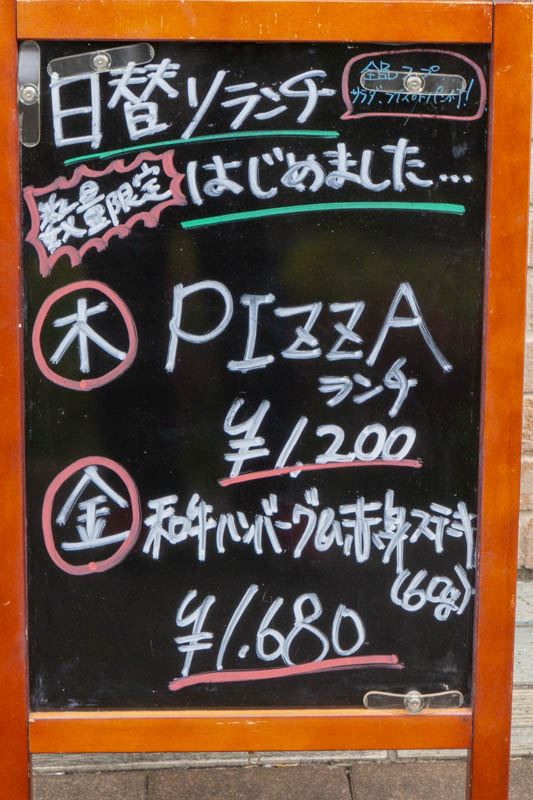 日替りランチ
全品スープ
サラダ、アイスorパン付!
数量限定
はじめました…
木 PIZZA
ランチ
¥1,200
金 和牛ハンバーグ&赤身ステーキ
(60g)
¥1.680